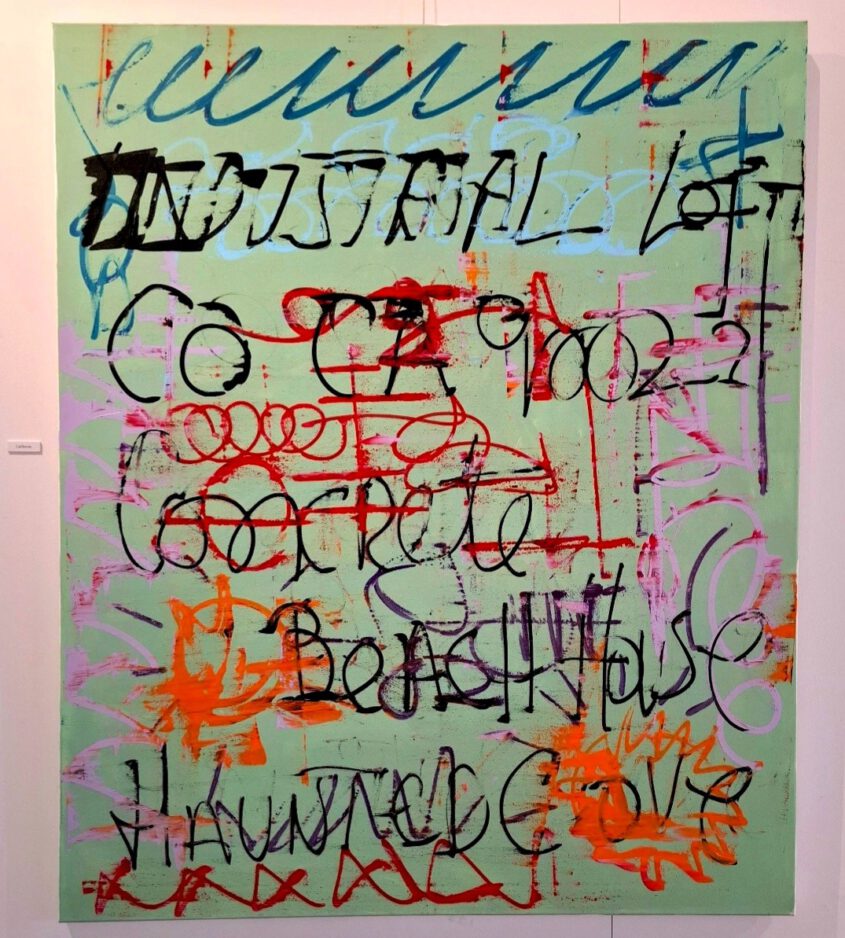 INDUSTRIAL LOFT
CO CA 90022
Concrete
BeACH House
HAUNTeD COVe